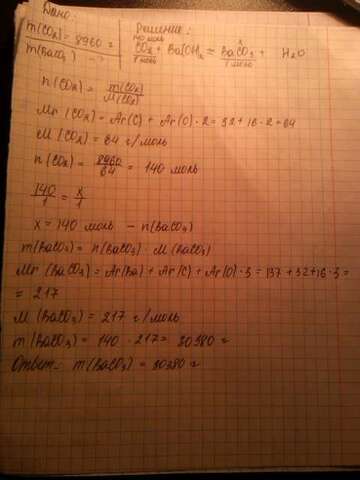 Дано:
m(CO₂) = 8960 г
m(BaCO₃) - ?
Решение:
140 моль x
CO₂ + Ba(OH)₂ = BaCO₃ + H₂O
1 моль 1 моль
n(CO₂) = m(CO₂) / M(CO₂)
Mr(CO₂) = Ar(C) + Ar(O) · 2 = 32 + 16 · 2 = 64
M(CO₂) = 64 г/моль
n(CO₂) = 8960 / 64 = 140 моль
140 / 1 = x / 1
x = 140 моль - n(BaCO₃)
m(BaCO₃) = n(BaCO₃) · M(BaCO₃)
Mr(BaCO₃) = Ar(Ba) + Ar(C) + Ar(O) · 3 = 137 + 32 + 16 · 3 =
= 217
M(BaCO₃) = 217 г/моль
m(BaCO₃) = 140 · 217 = 30380 г
Ответ: m(BaCO₃) = 30380 г